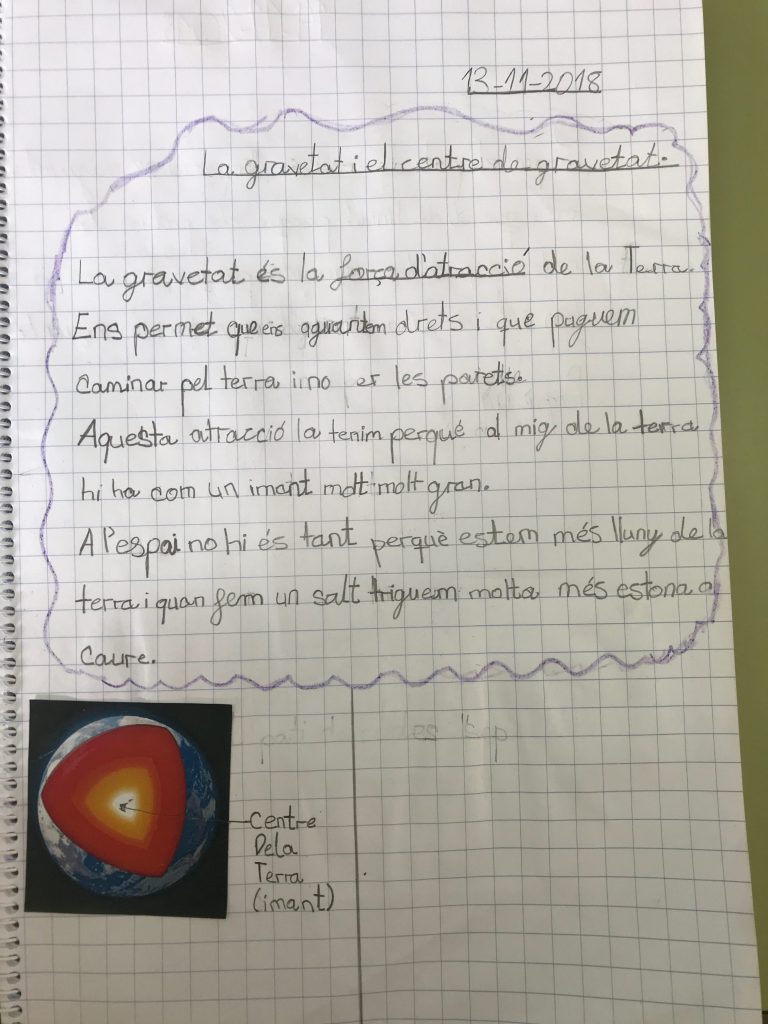 13-11-2018
La gravetat i el centre de gravetat.
La gravetat és la força d'atracció de la Terra.
Ens permet que ens aguantem drets i que puguem
Caminar pel terra i no per les parets.
Aquesta atracció la tenim perquè al mig de la terra
hi ha com un imant molt molt gran.
A l'espai no hi és tant perquè estem més lluny de la
terra i quan fem un salt triguem molta més estona a
Caure.
Centre
De la
Terra
(imant)